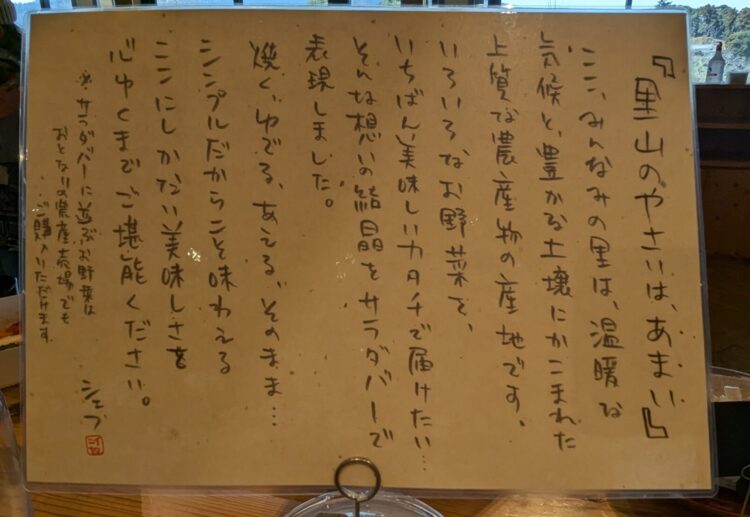 『里山のやさいは、あまい』
ここ、みんなみの里は、温暖な
気候と、豊かな土壌にかこまれた
上質な農産物の産地です。
いろいろなお野菜を、
いちばん美味しいカタチで届けたい…
そんな想いの結晶をサラダバーで
表現しました。
焼く、ゆでる、あえる、そのまま…
シンプルだからこそ味わえる
ここにしかない美味しさを
心ゆくまでご堪能ください。
シェフ
※サラダバーに並ぶお野菜は
おとなりの農産売場でも
ご購入いただけます